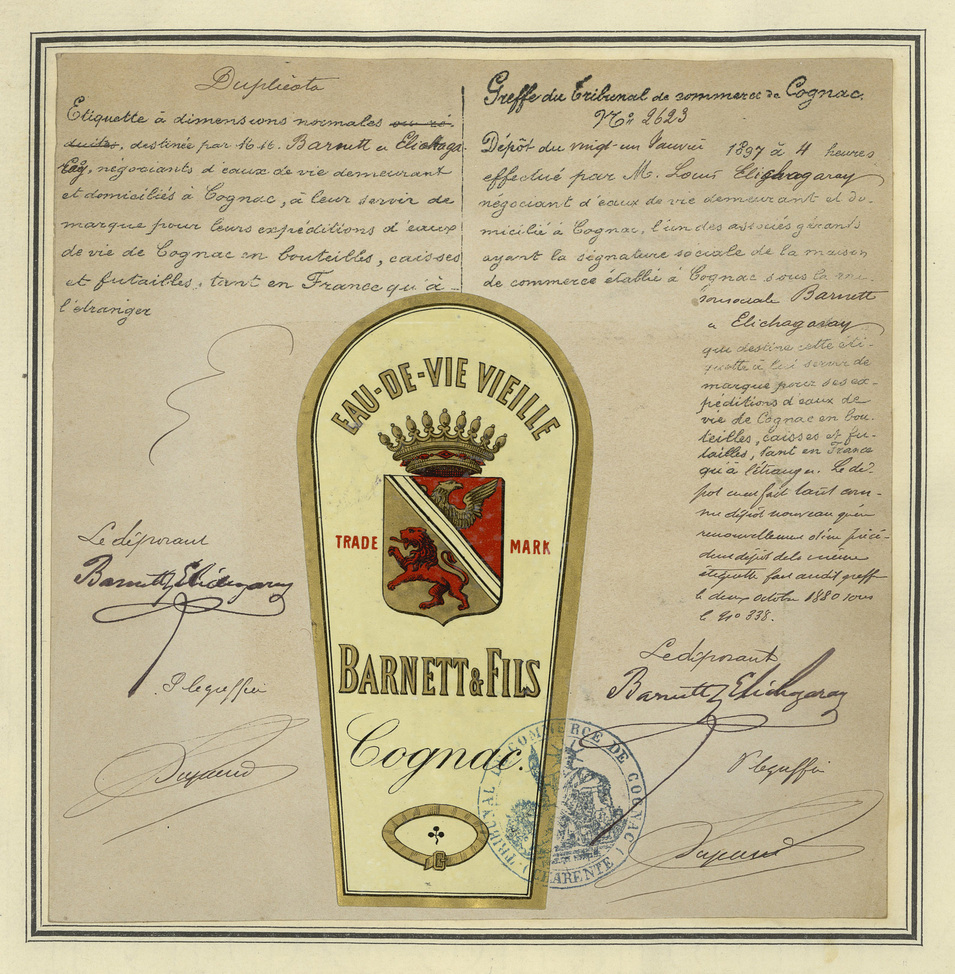 Duplicata
Etiquette à dimensions normales ou ré-
duites, destinée par M.M. Barnett & Elichaga-
ray, négociants d'eaux de vie demeurant
et domiciliés à Cognac, à leur servir de
marque pour leurs expéditions d'eaux
de vie de Cognac en bouteilles, caisses
et futailles, tant en France qu'à
l'étranger
Le déposant
Barnett & Elichagaray
P. le greffier
Greffe du Tribunal de commerce de Cognac.
No 2623
Dépôt du vingt-un Janvier 1897 à 4 heures
effectué par M. Louis Elichagaray
négociant d'eaux de vie demeurant et do-
micilié à Cognac, l'un des associés gérants
ayant la signature sociale de la maison
de commerce établie à Cognac sous la rai-
son sociale Barnett
& Elichagaray
qui destine cette éti-
quette à lui servir de
marque pour ses ex-
péditions d'eaux de
vie de Cognac en bou-
teilles, caisses et fu-
tailles, tant en France
qu'à l'étranger. Ce dé-
pôt est fait tant com-
me dépôt nouveau qu'en
renouvellement d'un précé-
dent dépôt de la même
étiquette fait audit greffe
le deux octobre 1880 sous
le No 338.
Le déposant
Barnett & Elichagaray
P. le greffier
EAU-DE-VIE VIEILLE
TRADE MARK
BARNETT & FILS
Cognac.
TRIBUNAL DE COMMERCE DE COGNAC
(CHARENTE)